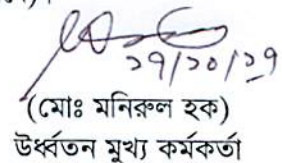 ১৭/১০/১৭
(মোঃ মনিরুল হক)
উর্ধ্বতন মুখ্য কর্মকর্তা